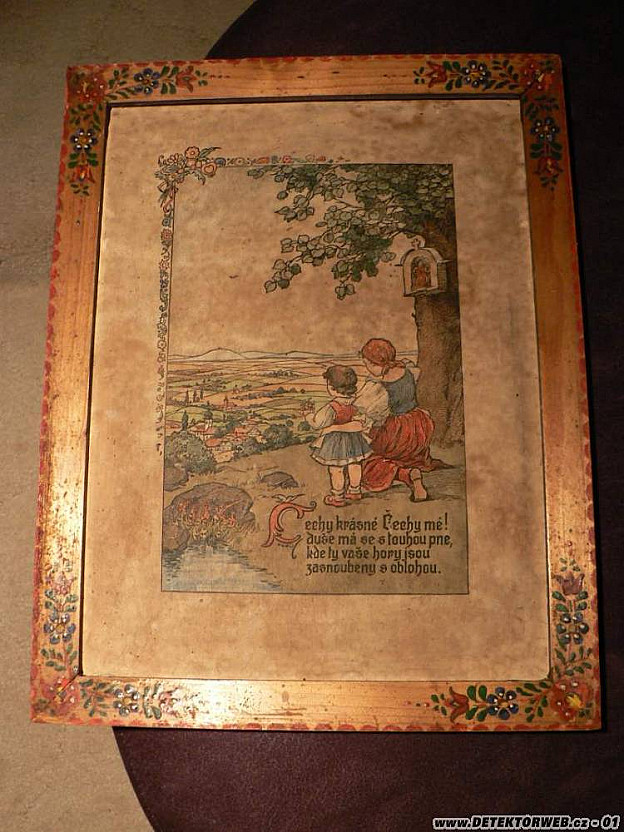 Čechy krásné Čechy mé!
duše má se s touhou pne,
kde ty vaše hory jsou
zasnoubeny s oblohou.
www.DETEKTORWEB.cz - 01